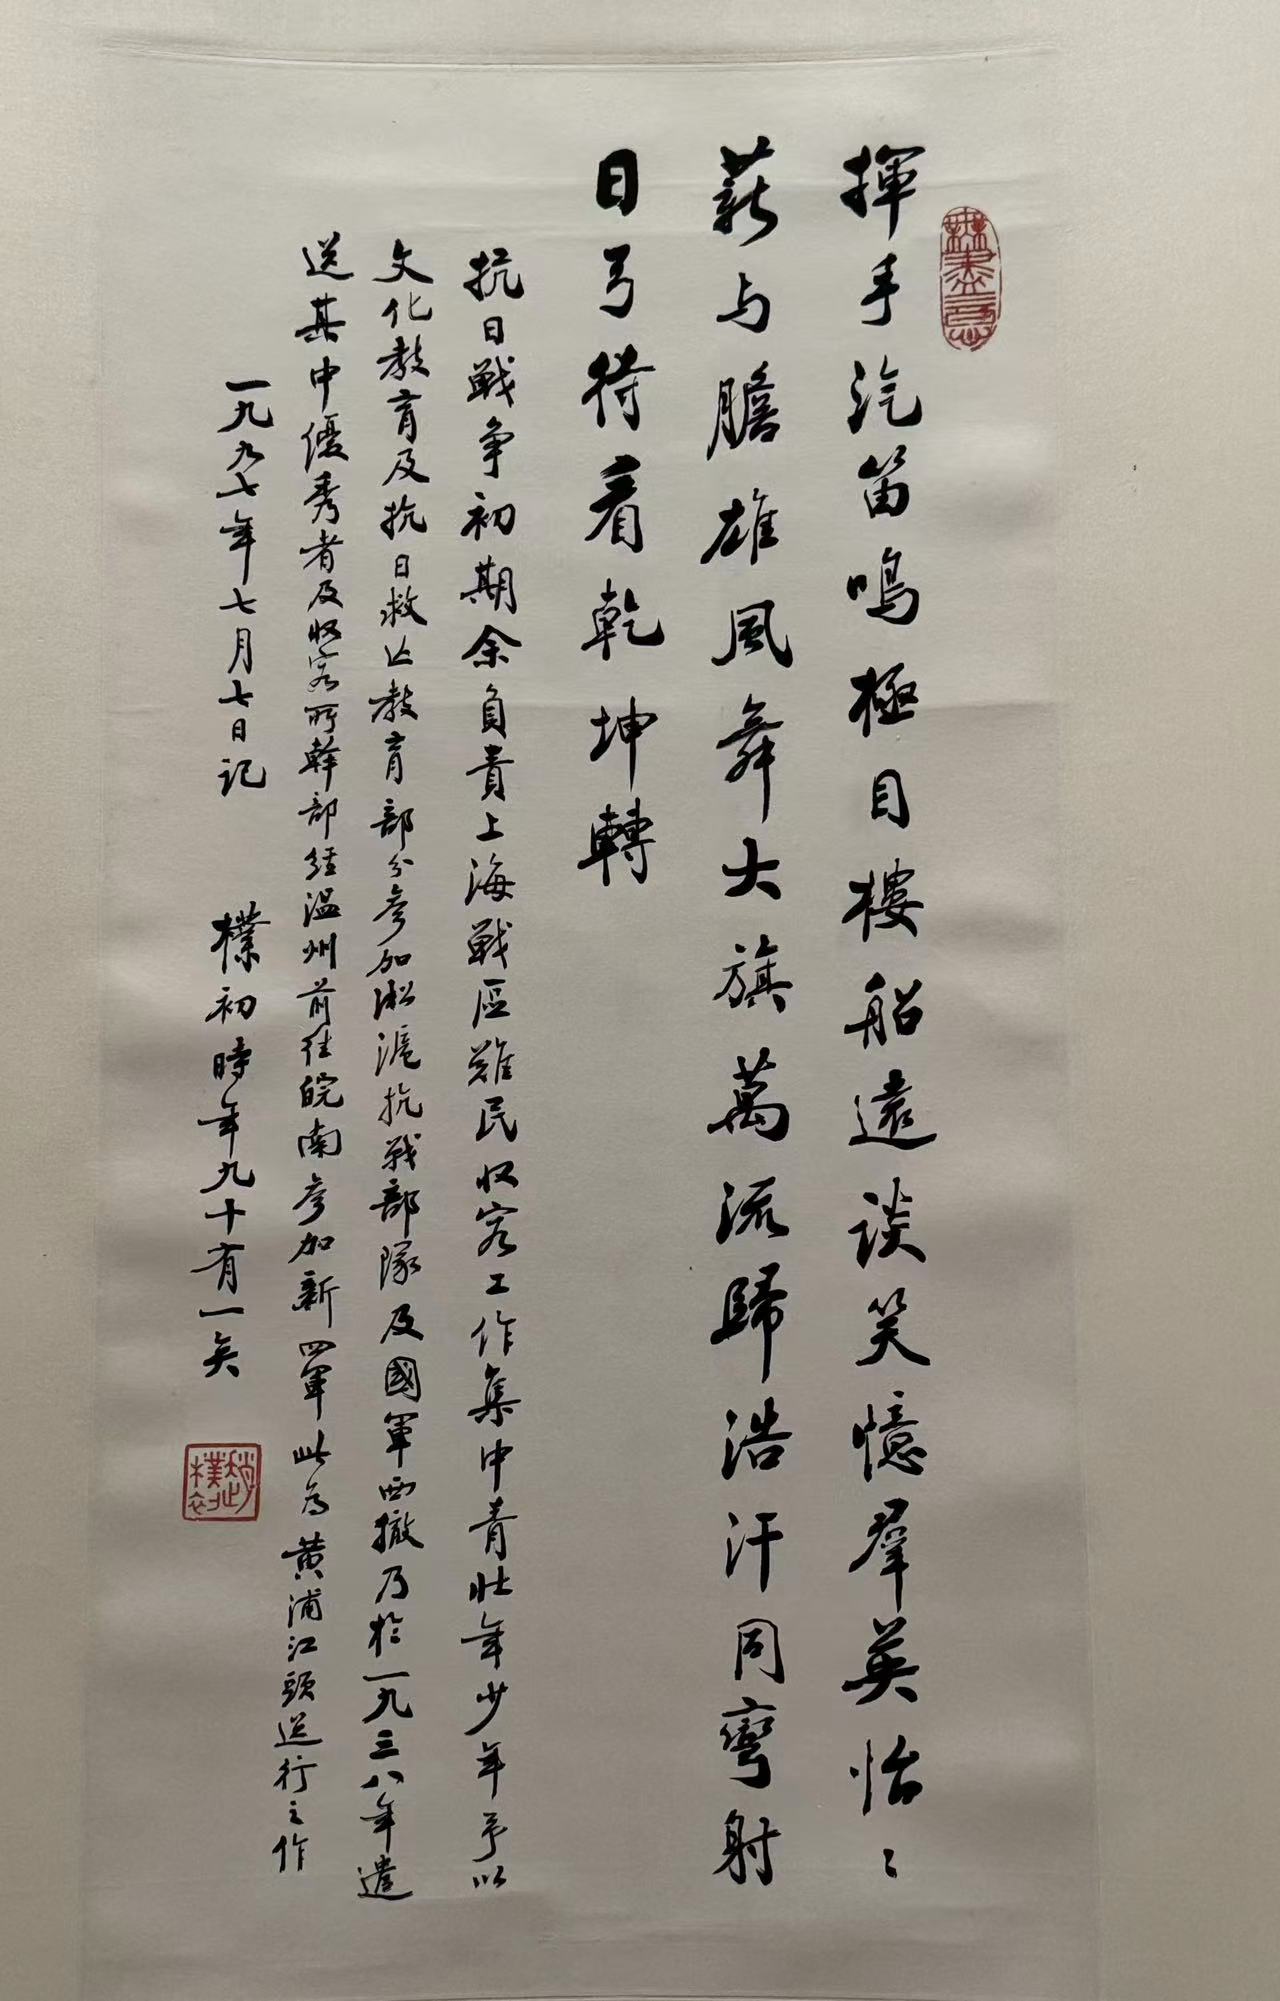 無盡意
揮手汽笛鳴極目樓船遠談笑憶羣英怡〻
薪与膽雄風舞大旗萬流歸浩汗同彎射
日弓待看乾坤轉
抗日戰争初期余負責上海戰區難民收容工作集中青壯年少年予以
文化教育及抗日救亡教育部分参加淞滬抗戰部隊及國軍西撤乃於一九三八年遣
送其中優秀者及收容所幹部經温州前往皖南参加新四軍此為黄浦江頭送行之作
一九九七年七月七日記
樸初時年九十有一矣
趙樸初